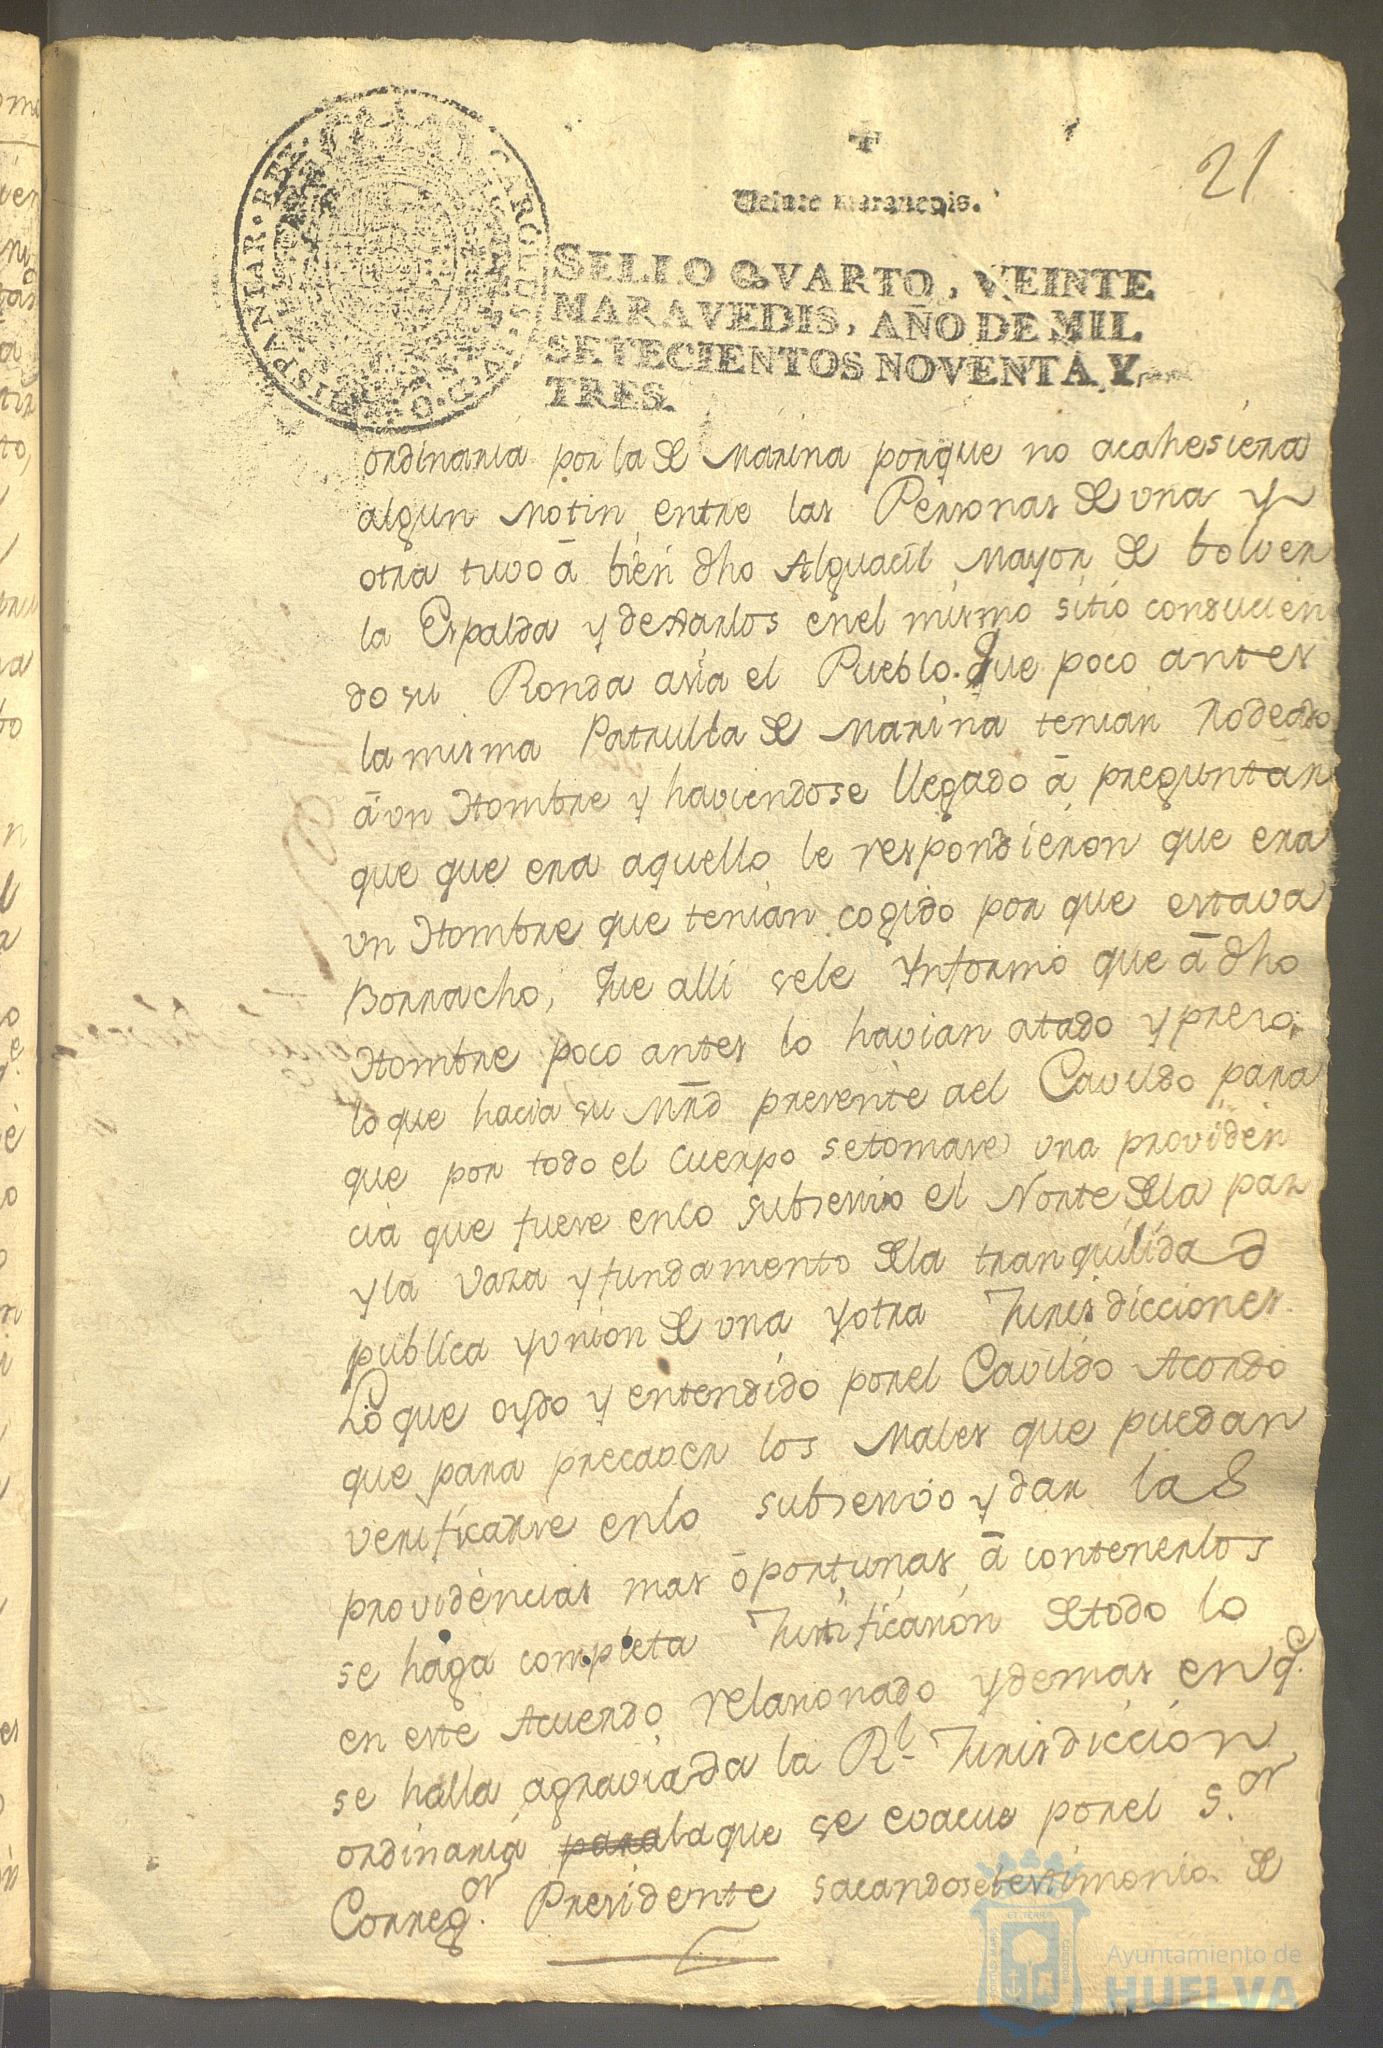 21
Veinte maravedis.
SELLO QVARTO, VEINTE
MARAVEDIS, AÑO DE MIL
SETECIENTOS NOVENTA Y
TRES.
CAROLUS IV D G HISPANIAR REX
ordinaria por la de Marina porque no acahesiera
algun Motin entre las Personas de una y
otra tuvo â bien dho Alguacil Mayor de bolver
la Espalda y dexarlos enel mismo sitio conducien
do su Ronda asia el Pueblo. Que poco antes
la misma Patrulla de Marina tenian Rodeado
â un Hombre y haviendose llegado â preguntar
que que era aquello le respondieron que era
un Hombre que tenian cogido por que estava
Borracho, Que alli sele Ynformó que â dho
Hombre poco antes lo havian atado y preso,
lo que hacia su Mrd presente ael Cavildo para
que por todo el Cuerpo setomase una providen
cia que fuese enlo subsesivo el Norte dela paz
y la vaza y fundamento dela tranquilidad
publica y union de una y otra Jurisdicciones.
Lo que oydo y entendido porel Cavildo Acordo
que para precaver los Males que puedan
verificarse enlo subsesivo y dar las
providencias mas ôportunas â contenerlos
se haga completa Justificasion detodo lo
en este Acuerdo relasionado y demas en q.e
se halla agraviada la Rl. Jurisdiccion
ordinaria para laque se evacue porel S.or
Correg.or Presidente sacandose testimonio de
Ayuntamiento de
HUELVA